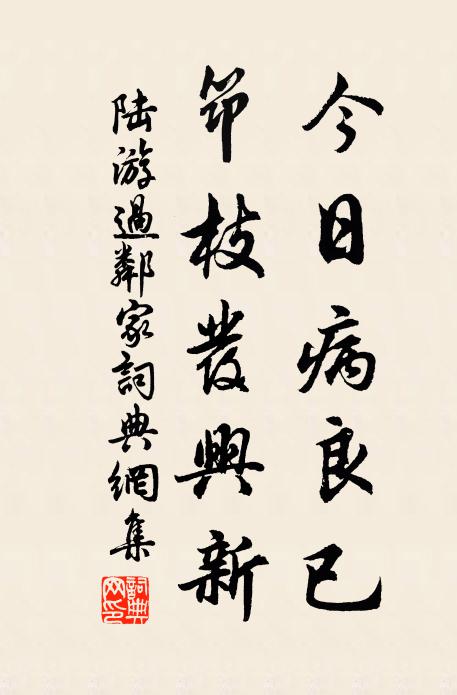 今日病良已
笻枝發興新
陸游過鄰家詞典網集
詞典網印